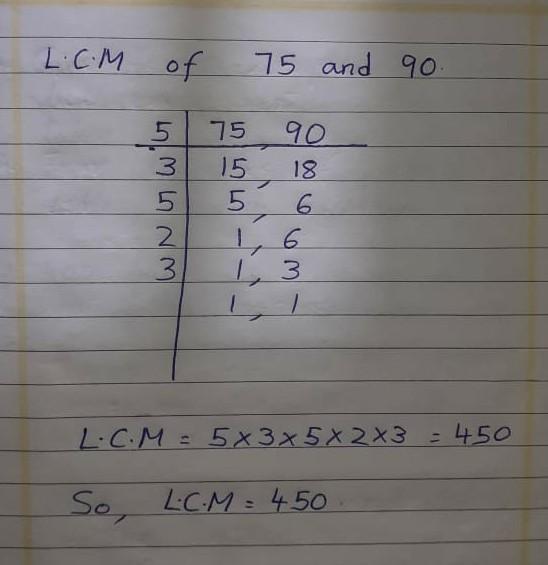 L.C.M of 75 and 90.
5 | 75, 90
3 | 15, 18
5 | 5, 6
2 | 1, 6
3 | 1, 3
1, 1
L.C.M = 5×3×5×2×3 = 450
So, L.C.M = 450.